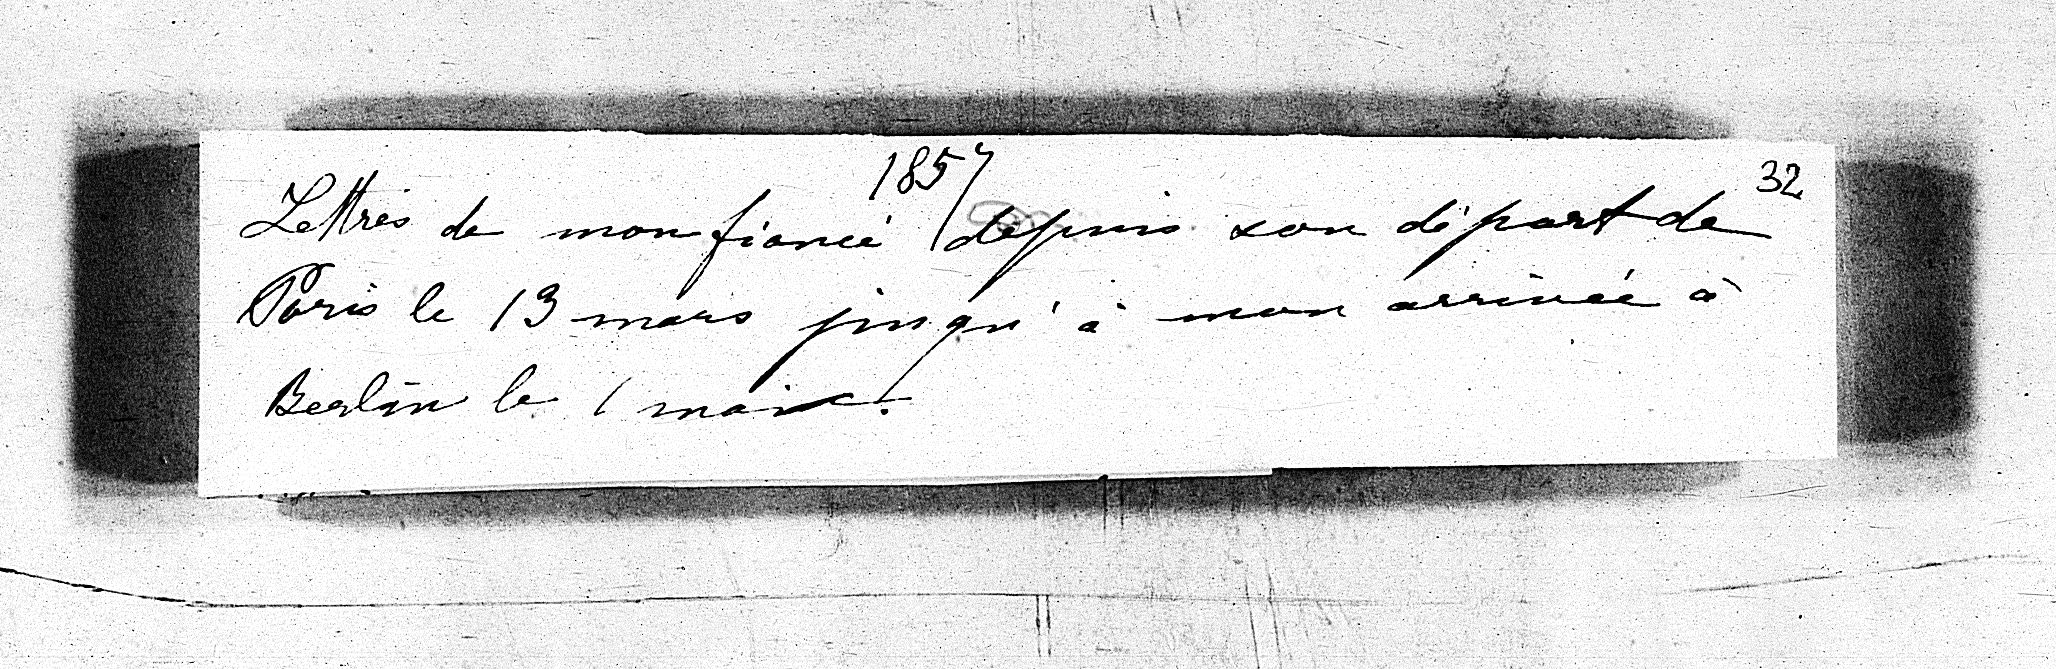 1857
32
Lettres de mon fiancé depuis son départ de
Paris le 13 mars jusqu'à mon arrivée à
Berlin le 1 mai.